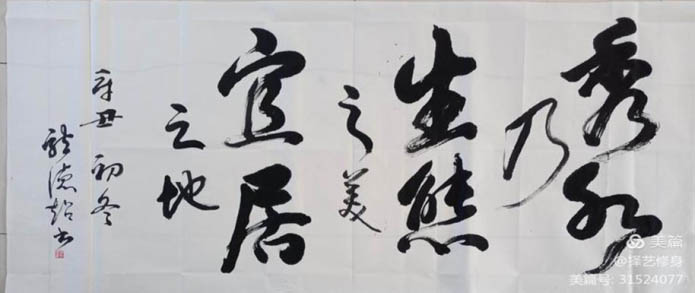 秀水
乃
生态
之美
宜居
之地
辛丑初冬
德超书
美篇
@择艺修身
美篇号: 31524077